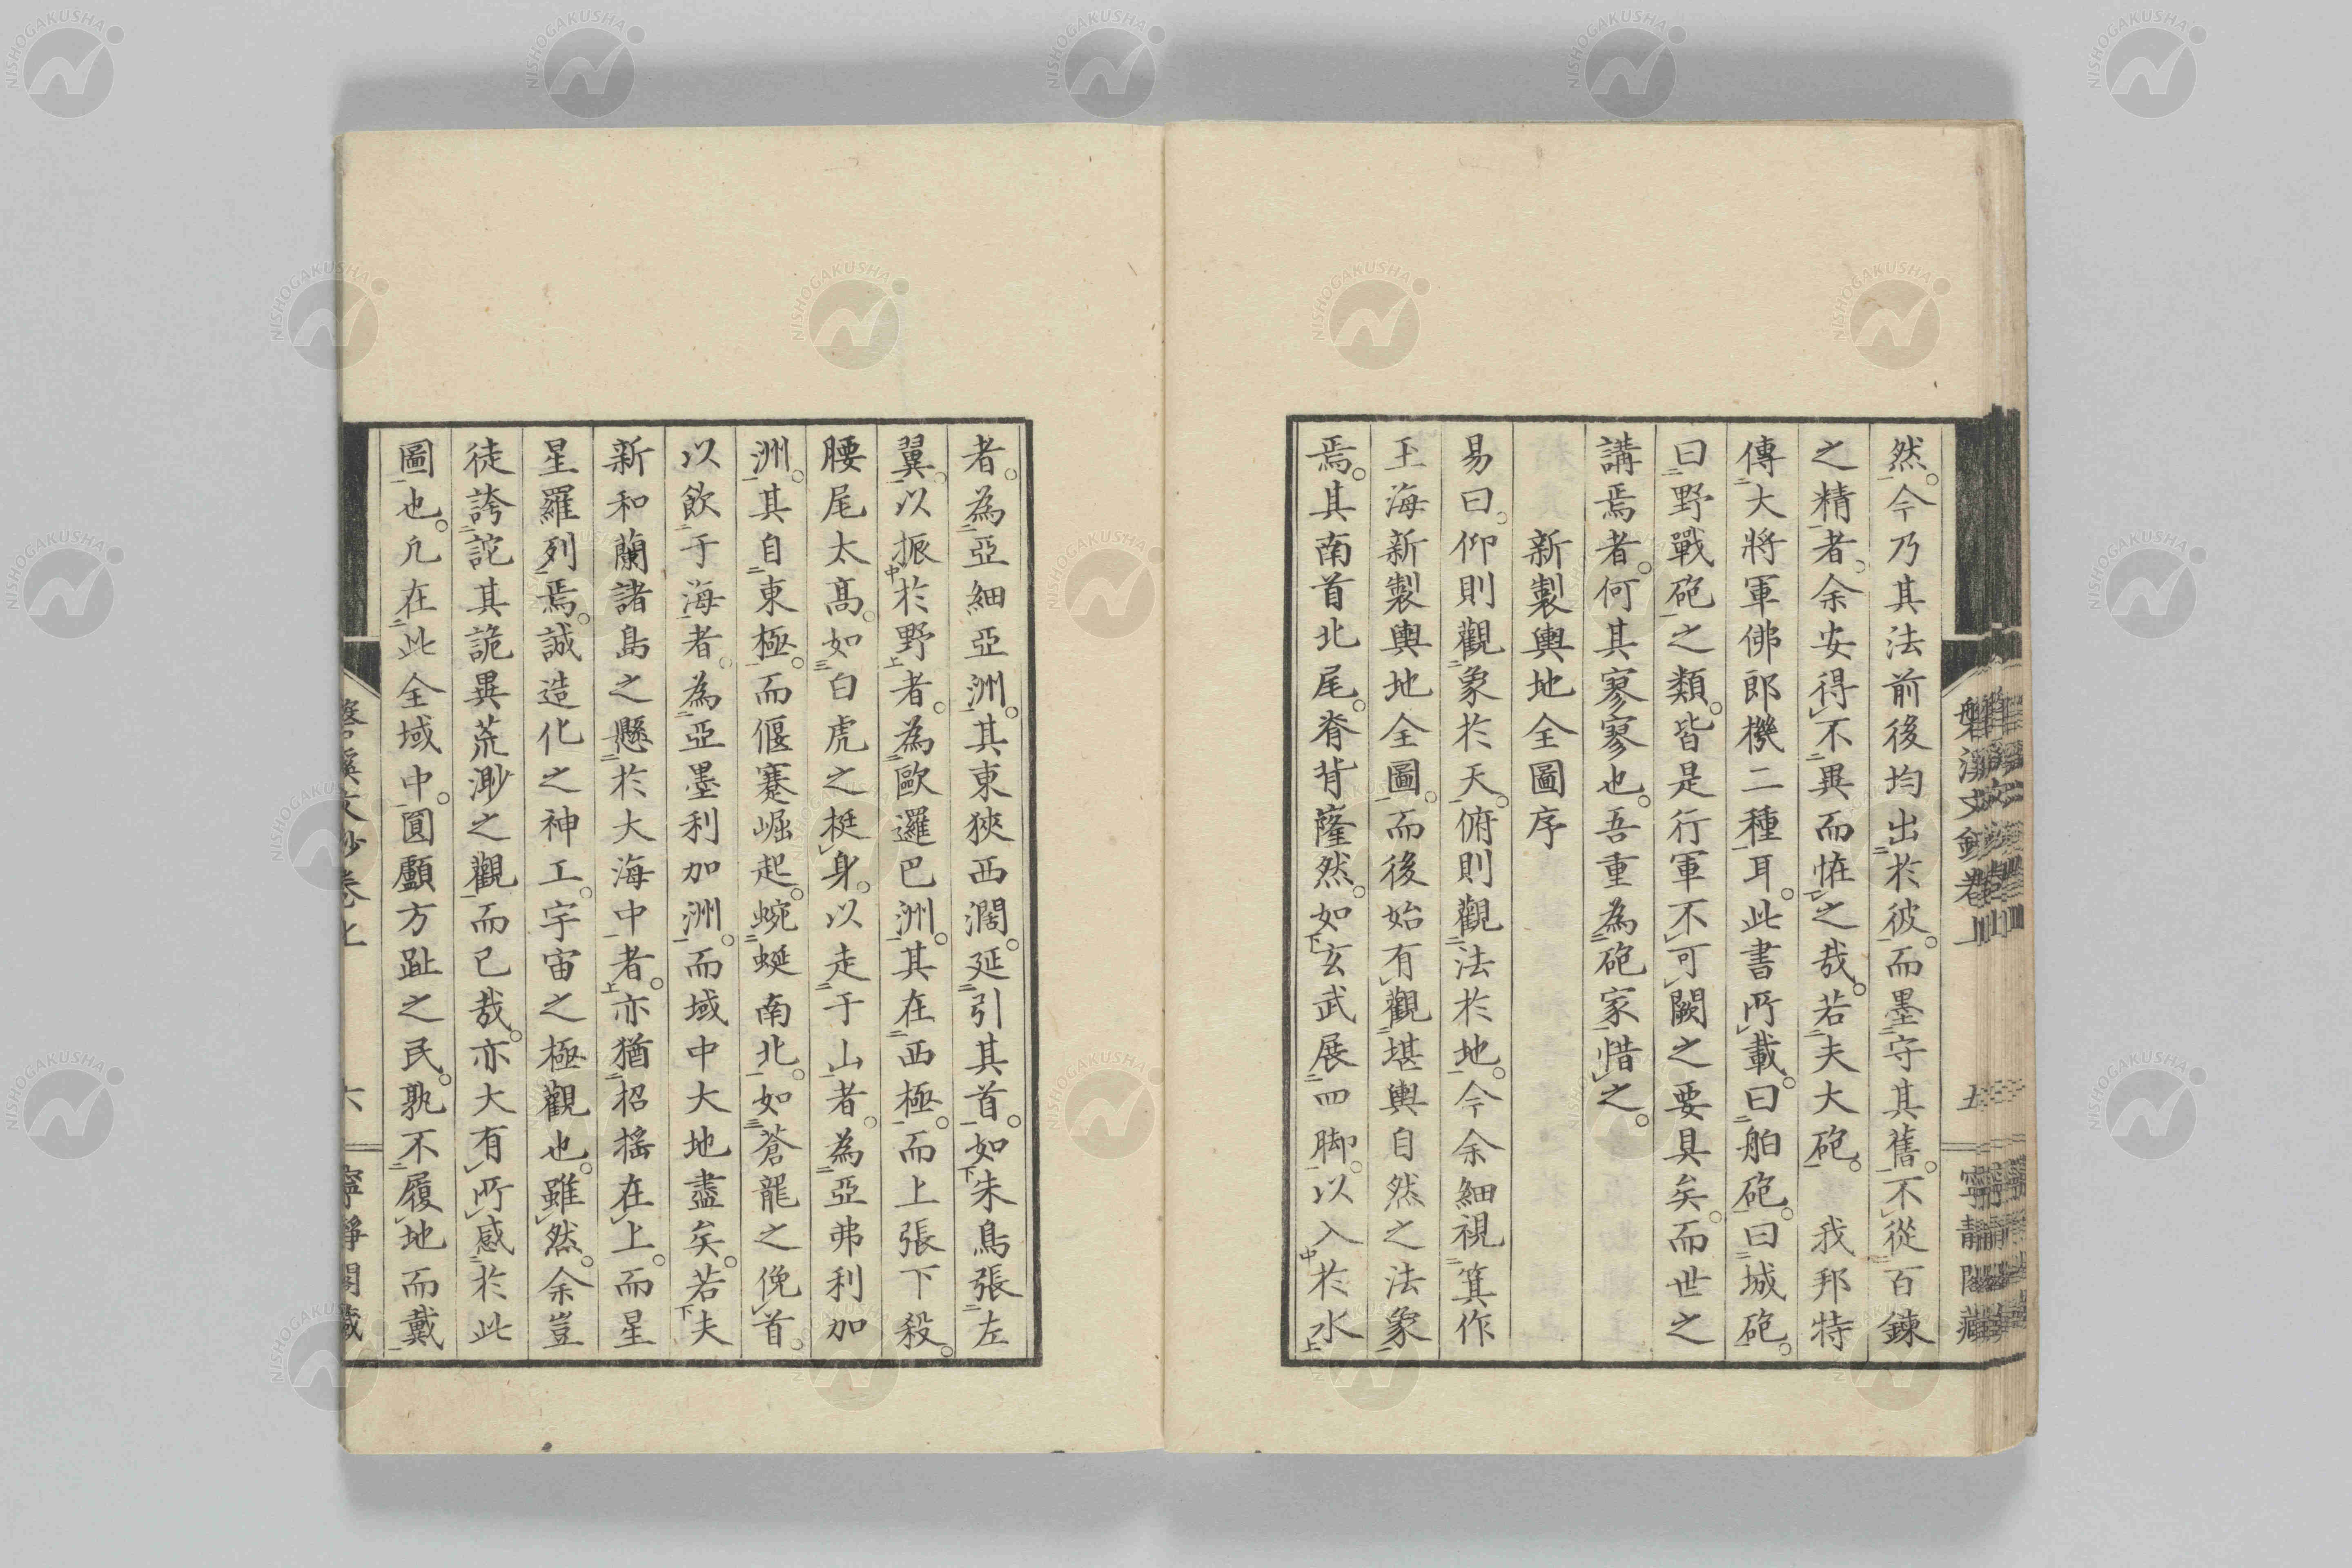 然。今乃其法前後均出於彼。而墨守其舊。不從百鍊
之精者。余安得不異而恠之哉。若夫大砲。我邦特
傳大將軍佛郎機二種耳。此書所載。曰舶砲。曰城砲。
曰野戰砲之類。皆是行軍不可闕之要具矣。而世之
講焉者。何其寥寥也。吾重為砲家惜之。
新製輿地全圖序
易曰。仰則觀象於天。俯則觀法於地。今余細視箕作
玉海新製輿地全圖。而後始有觀堪輿自然之法象
焉。其南首北尾。脊背隆然。如玄武展四脚。以入於水
者。為亞細亞洲。其東狹西濶。延引其首。如朱鳥張左
翼。以振於野者。為歐邏巴洲。其在西極。而上張下殺。
腰尾太高。如白虎之挺身。以走于山者。為亞弗利加
洲。其自東極。而偃蹇崛起。蜿蜒南北。如蒼龍之俛首。
以飲于海者。為亞墨利加洲。而域中大地盡矣。若夫
新和蘭諸島之懸於大海中者。亦猶招搖在上。而星
星羅列焉。誠造化之神工。宇宙之極觀也。雖然。余豈
徒誇詑其詭異荒渺之觀而已哉。亦大有所感於此
圖也。凡在此全域中。圓顱方趾之民。孰不履地而戴
磐溪文鈔卷上 五 寧靜閣藏
磐溪文鈔卷上 六 寧靜閣藏
NISHOGAKUSHA